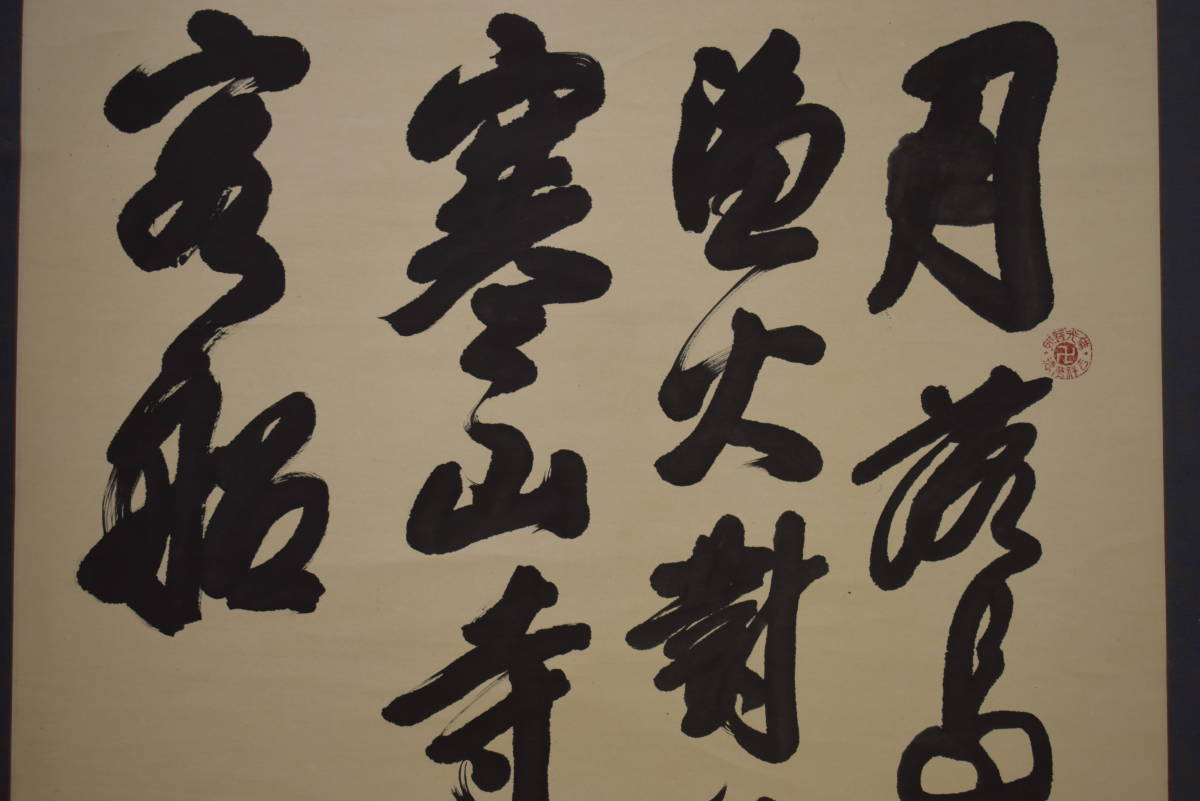 月落烏
漁火對
寒山寺
客船